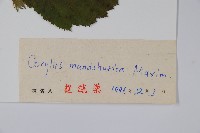 Corylus mandshurica Maxim.
定名人 1996年12月3日